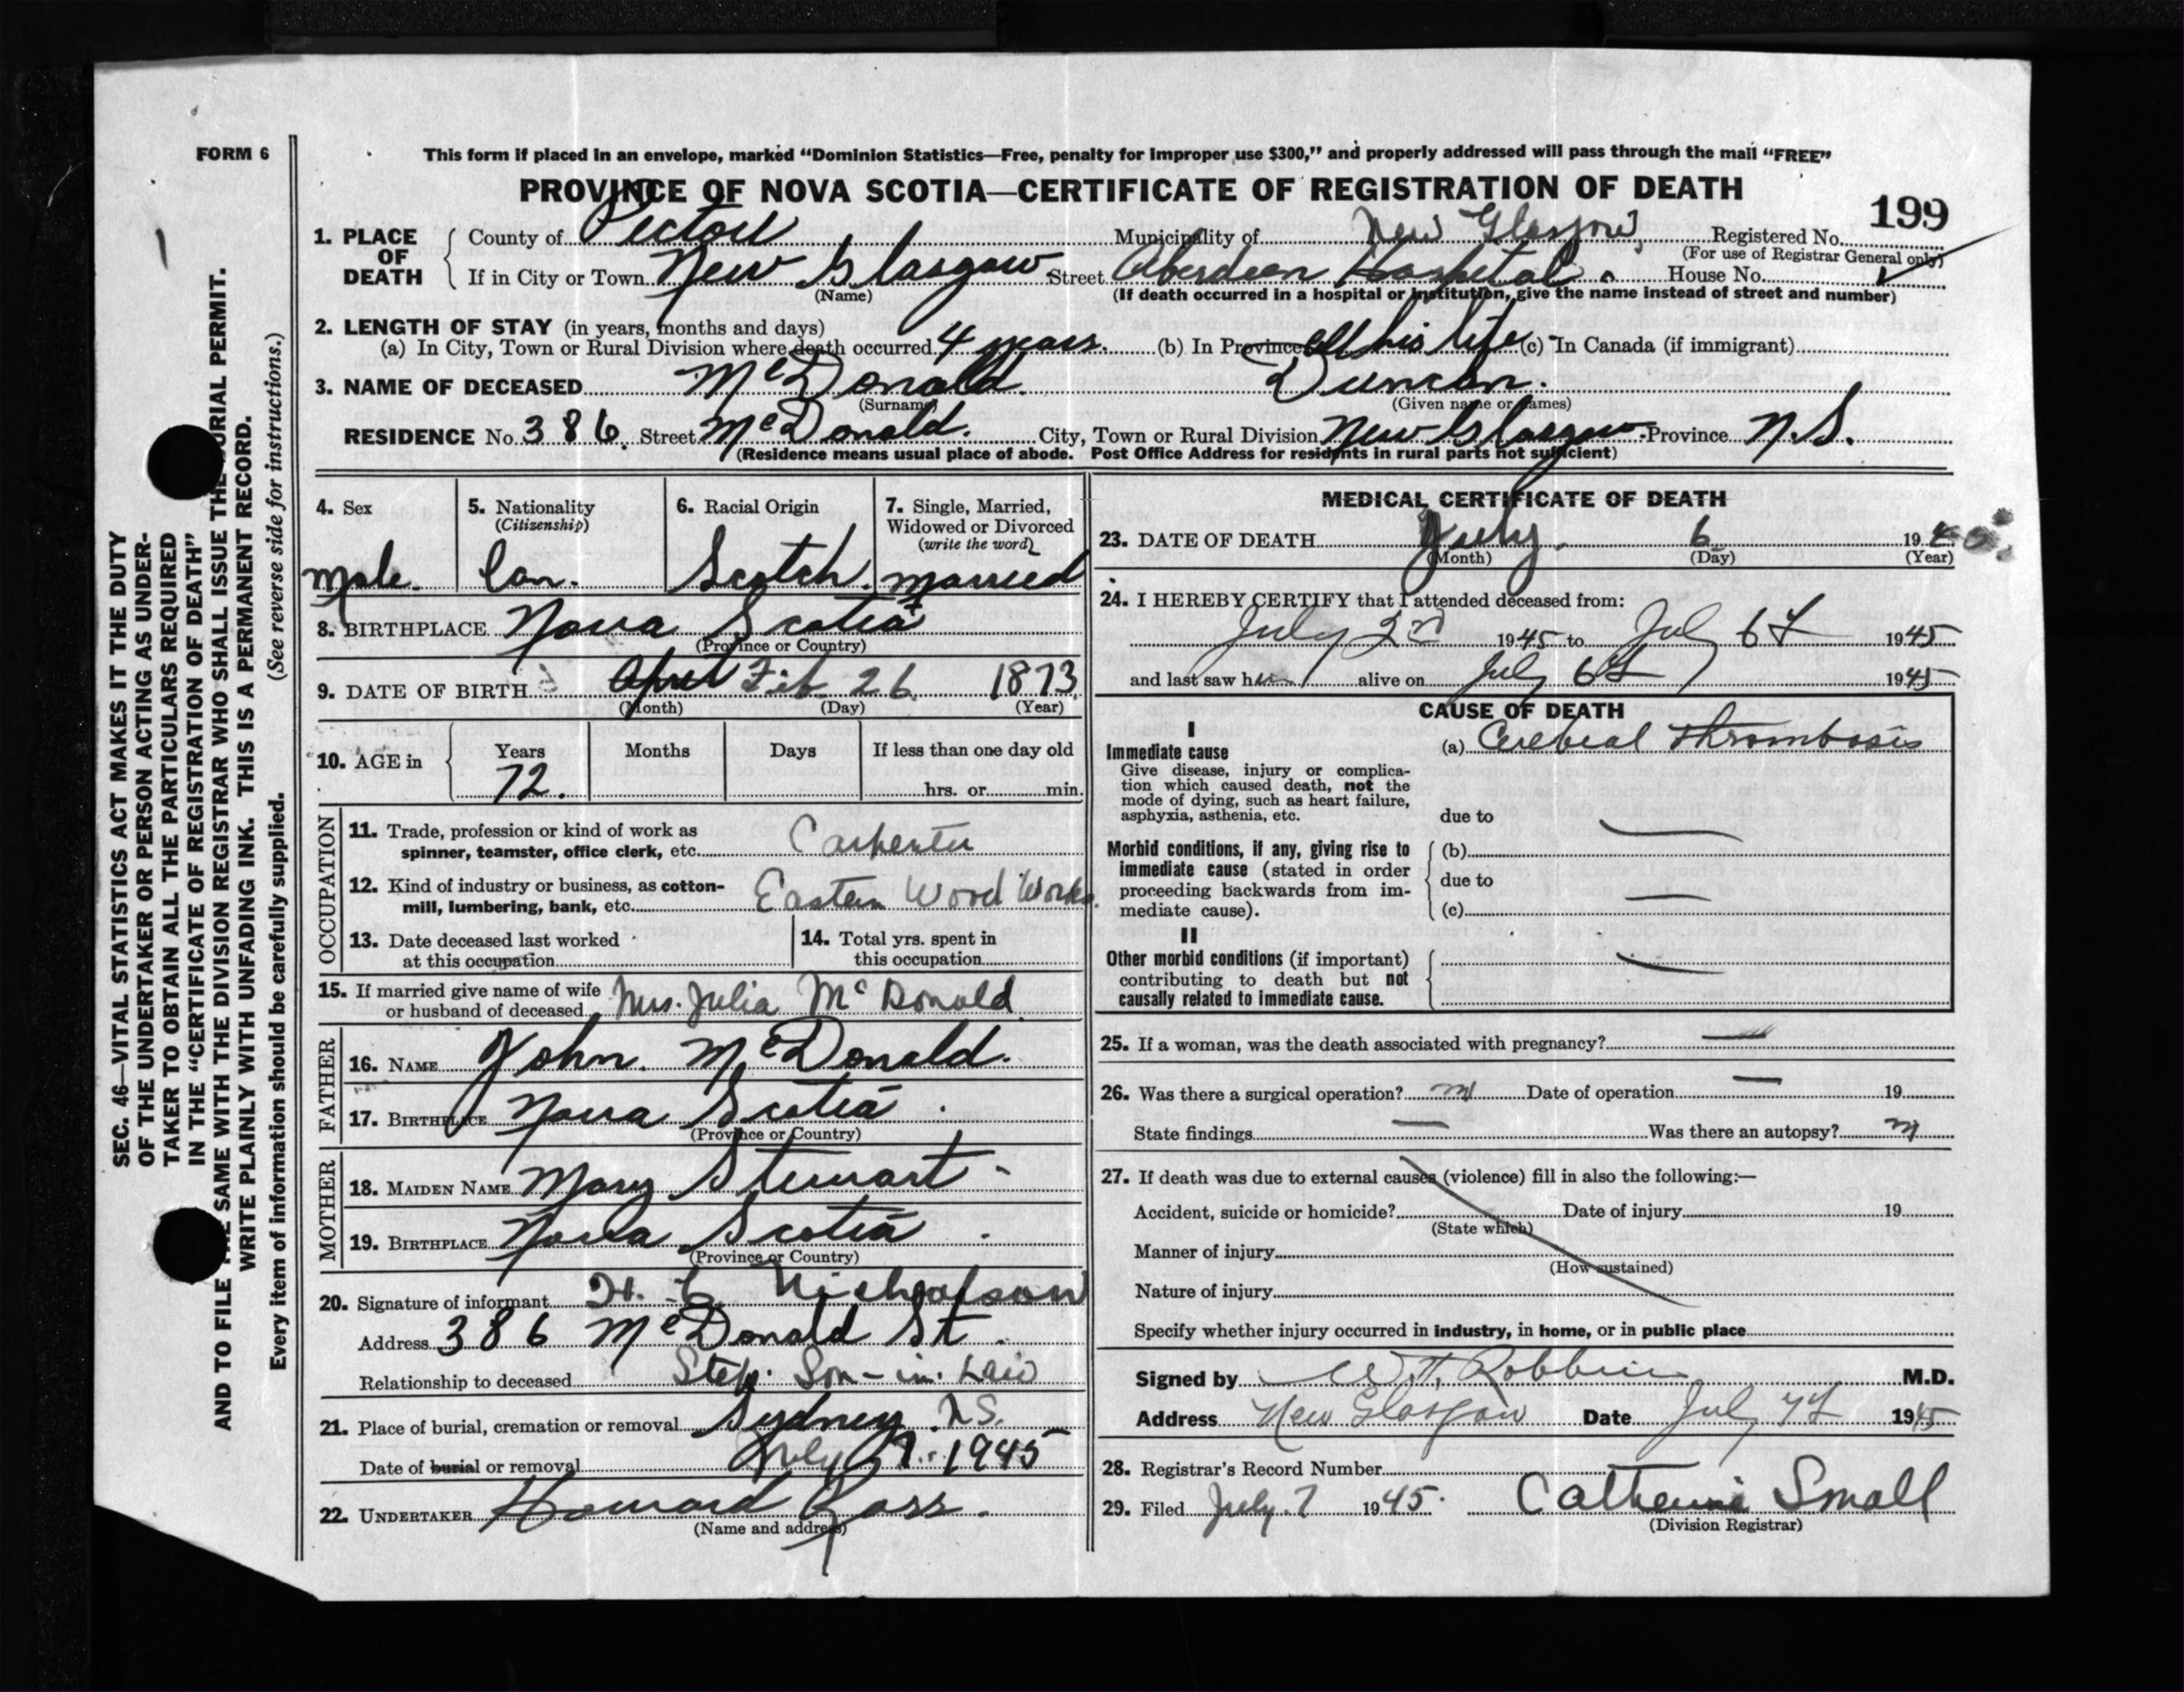 FORM 6
This form if placed in an envelope, marked "Dominion Statistics—Free, penalty for improper use $300," and properly addressed will pass through the mail "FREE"
PROVINCE OF NOVA SCOTIA—CERTIFICATE OF REGISTRATION OF DEATH
199
1. PLACE OF DEATH
County of Pictou Municipality of New Glasgow Registered No.
(For use of Registrar General only)
If in City or Town New Glasgow Street Aberdeen Hospital. House No.
(Name) (If death occurred in a hospital or institution, give the name instead of street and number)
2. LENGTH OF STAY (in years, months and days)
(a) In City, Town or Rural Division where death occurred 4 years. (b) In Province All his life (c) In Canada (if immigrant)
3. NAME OF DECEASED McDonald. Duncan.
(Surname) (Given name or names)
RESIDENCE No. 386. Street McDonald. City, Town or Rural Division New Glasgow. Province N.S.
(Residence means usual place of abode. Post Office Address for residents in rural parts not sufficient)
4. Sex
male.
5. Nationality
(Citizenship)
Can.
6. Racial Origin
Scotch.
7. Single, Married,
Widowed or Divorced
(write the word)
married
8. BIRTHPLACE Nova Scotia
(Province or Country)
9. DATE OF BIRTH April Feb. 26 1873
(Month) (Day) (Year)
10. AGE in
Years Months Days If less than one day old
72. hrs. or min.
OCCUPATION
11. Trade, profession or kind of work as
spinner, teamster, office clerk, etc. Carpenter
12. Kind of industry or business, as cotton-
mill, lumbering, bank, etc. Eastern Wood Works.
13. Date deceased last worked
at this occupation
14. Total yrs. spent in
this occupation
15. If married give name of wife
or husband of deceased Mrs. Julia McDonald
FATHER
16. NAME John. McDonald.
17. BIRTHPLACE Nova Scotia.
(Province or Country)
MOTHER
18. MAIDEN NAME Mary Stewart
19. BIRTHPLACE Nova Scotia.
(Province or Country)
20. Signature of informant Nicholson
Address 386 McDonald St.
Relationship to deceased Step. Son-in. Law
21. Place of burial, cremation or removal Sydney. N.S.
Date of burial or removal July 7. 1945
22. UNDERTAKER Howard Ross.
(Name and address)
MEDICAL CERTIFICATE OF DEATH
23. DATE OF DEATH July. 6 19
(Month) (Day) (Year)
24. I HEREBY CERTIFY that I attended deceased from:
July 1945 to July 6th 1945
and last saw him alive on July 6th 1945
CAUSE OF DEATH
I
Immediate cause
Give disease, injury or complica-
tion which caused death, not the
mode of dying, such as heart failure,
asphyxia, asthenia, etc.
(a) Cerebral Thrombosis
due to —
Morbid conditions, if any, giving rise to
immediate cause (stated in order
proceeding backwards from im-
mediate cause).
(b)
due to
— (c)
II
Other morbid conditions (if important)
contributing to death but not
causally related to immediate cause.
—
25. If a woman, was the death associated with pregnancy? —
26. Was there a surgical operation? no Date of operation — 19
State findings — Was there an autopsy? no
27. If death was due to external causes (violence) fill in also the following:—
Accident, suicide or homicide? Date of injury 19
(State which)
Manner of injury
(How sustained)
Nature of injury
Specify whether injury occurred in industry, in home, or in public place
Signed by Robbins M.D.
Address New Glasgow Date July 7th 1945
28. Registrar's Record Number
29. Filed July. 7 1945. Catherine Small
(Division Registrar)
SEC. 46—VITAL STATISTICS ACT MAKES IT THE DUTY
OF THE UNDERTAKER OR PERSON ACTING AS UNDER-
TAKER TO OBTAIN ALL THE PARTICULARS REQUIRED
IN THE "CERTIFICATE OF REGISTRATION OF DEATH"
AND TO FILE THE SAME WITH THE DIVISION REGISTRAR WHO SHALL ISSUE THE BURIAL PERMIT.
WRITE PLAINLY WITH UNFADING INK. THIS IS A PERMANENT RECORD.
Every item of information should be carefully supplied. (See reverse side for instructions.)